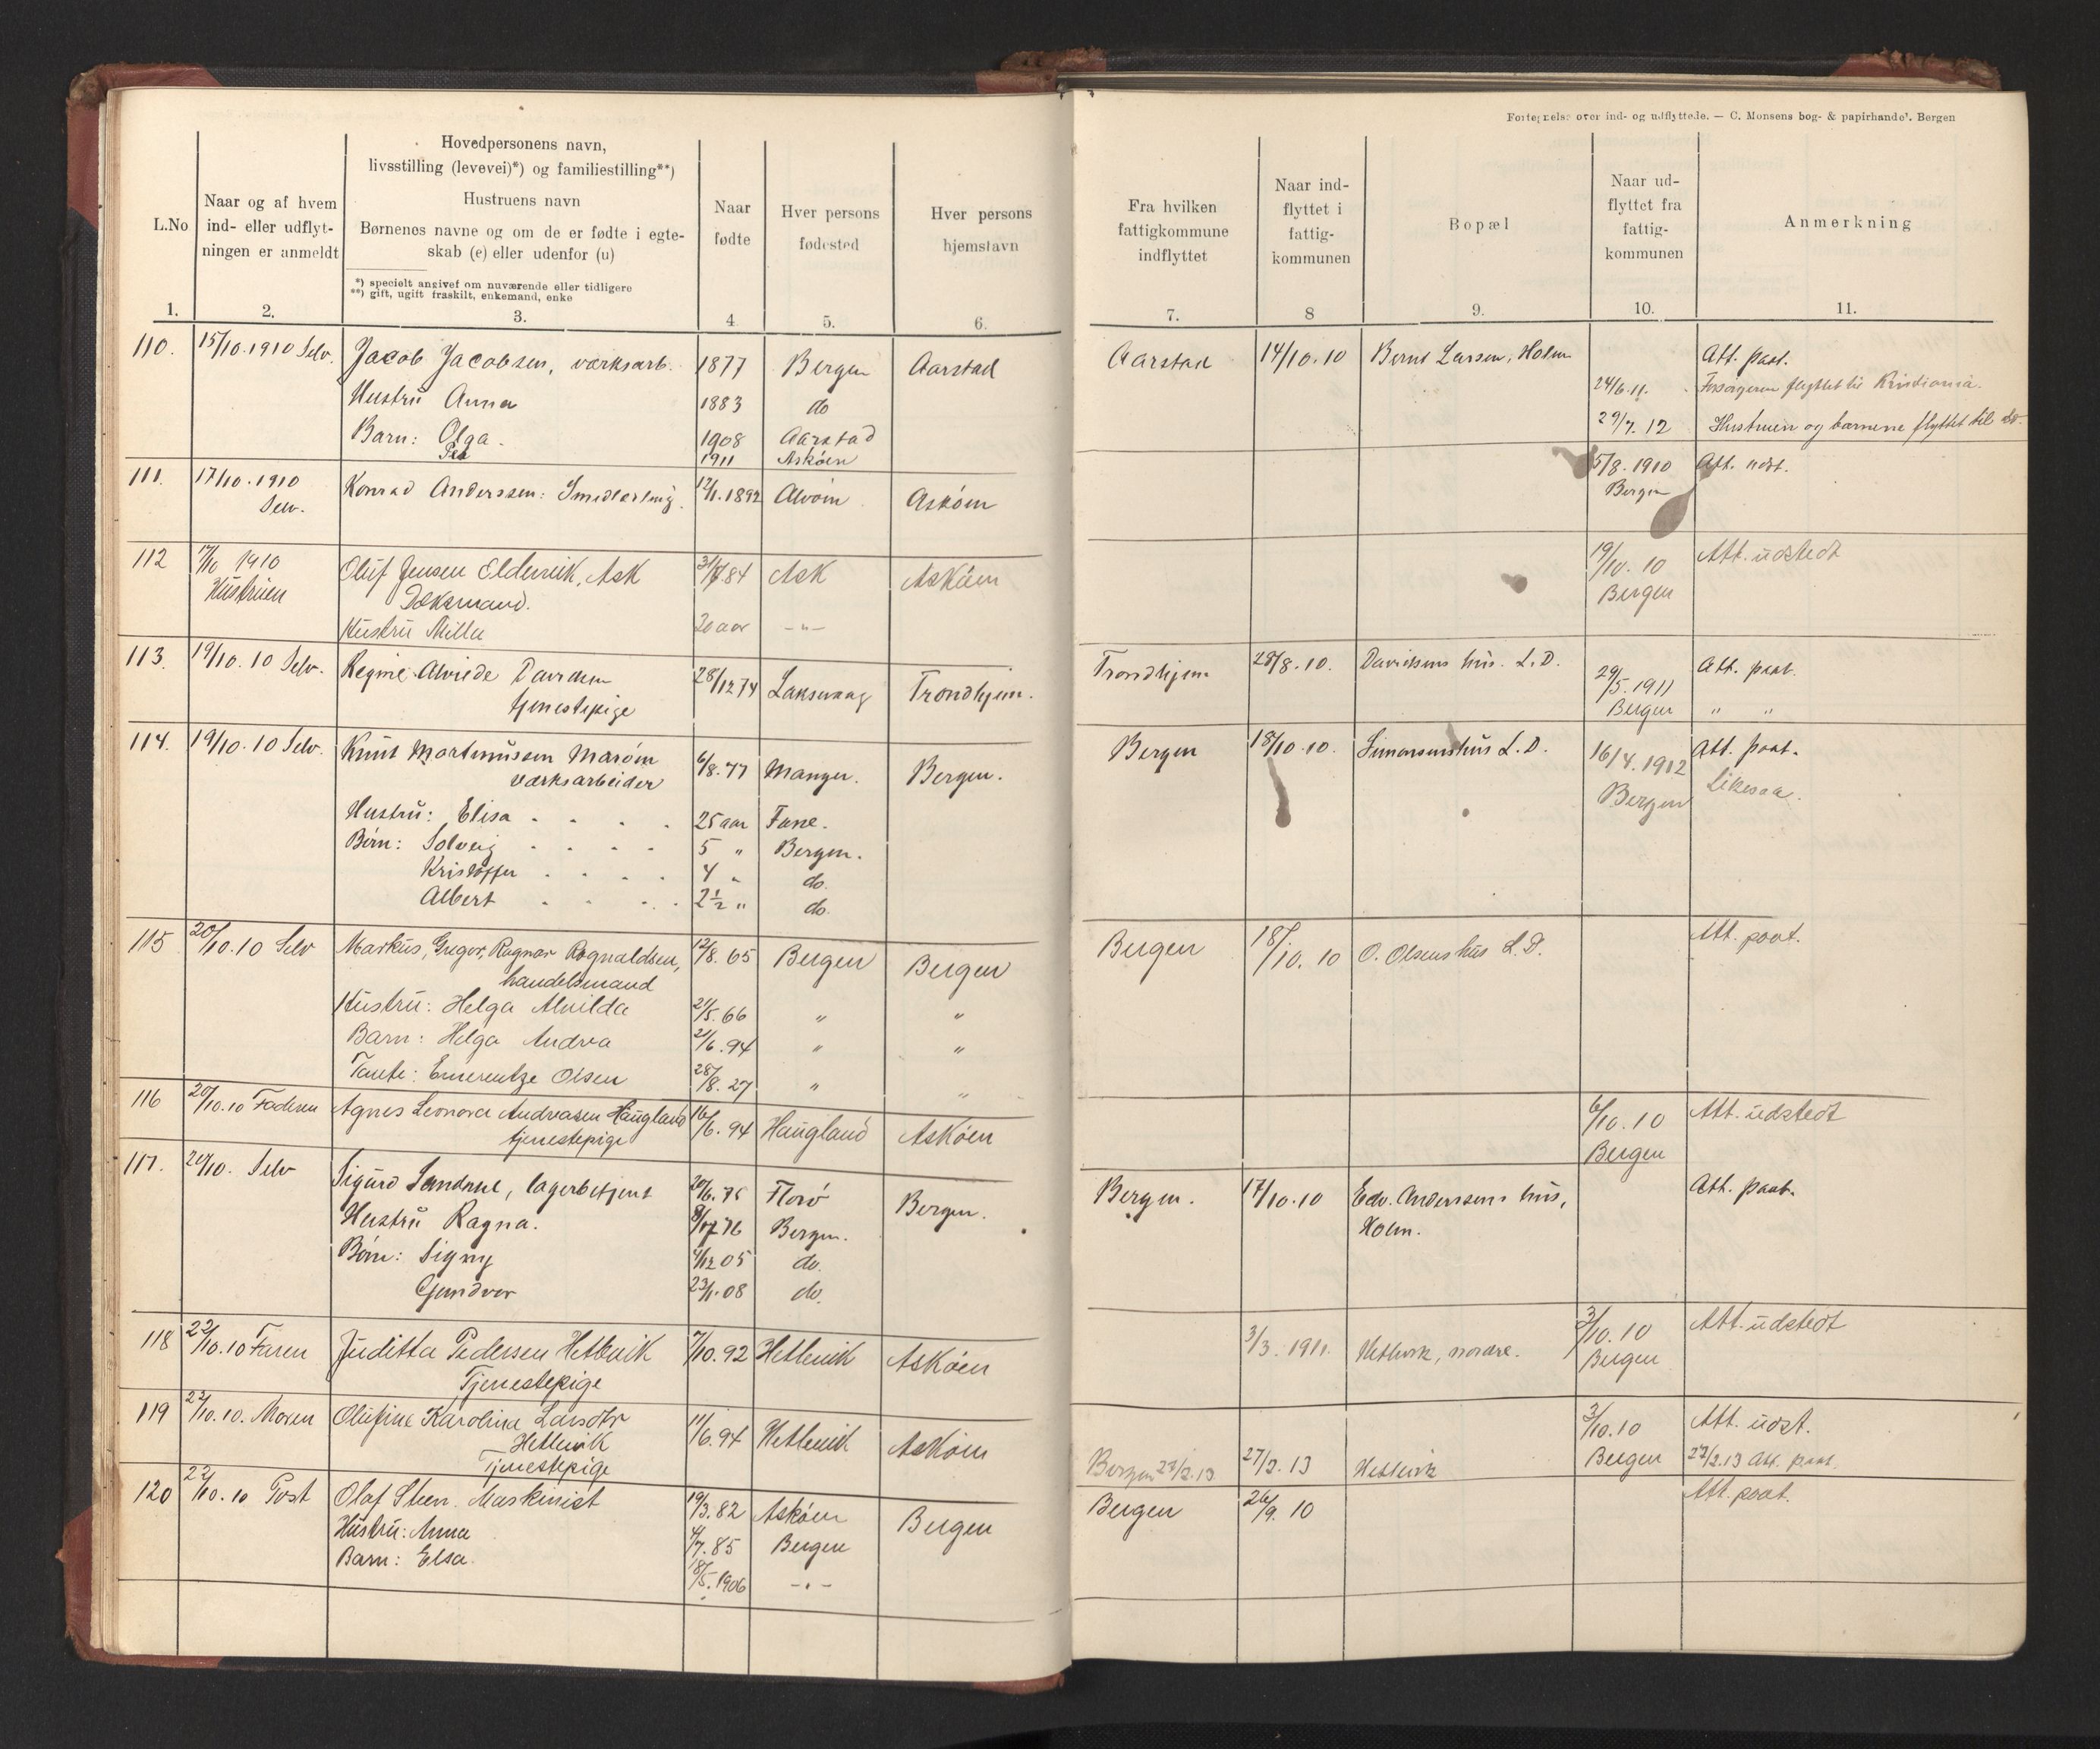 Fortegnelse over ind- og udflyttede. — C. Monsens bog- & papirhandel. Bergen
L.No
Naar og af hvem
ind- eller udflyt-
ningen er anmeldt
Hovedpersonens navn,
livsstilling (levevei)*) og familiestilling**)
Hustruens navn
Børnenes navne og om de er fødte i egte-
skab (e) eller udenfor (u)
*) specielt angivet om nuværende eller tidligere
**) gift, ugift fraskilt, enkemand, enke
Naar
fødte
Hver persons
fødested
Hver persons
hjemstavn
Fra hvilken
fattigkommune
indflyttet
Naar ind-
flyttet i
fattig-
kommunen
Bopæl
Naar ud-
flyttet fra
fattig-
kommunen
Anmerkning
1. 2. 3. 4 5. 6. 7. 8 9. 10. 11.
110. 15/10.1910 Selv. Jacob Jacobsen, værksarb. 1877 Bergen Aarstad Aarstad 14/10.10 Bernt Larsen, Holm Att. paat.
24/6.11. Forsørgeren flyttet til Kristiania.
Hustru Anna 1883 do
29/7.12 Hustruen og barnene flyttet til do.
Barn: Olga. 1908 Aarstad
1911 Askøen
111. 17/10.1910 Konrad Anderssen: Smedlærling. 12/1.1892 Alvøin Askøen 5/8.1910 Att. udst.
Selv. Bergen
112 17/10 1910 Oluf Jensen Eldervik, Ask 84 Ask Askøen 19/10.10 Att. udstedt
Hustruen Dæksmand. Bergen
Hustru Milla 20 aar -"-
113. 19/10.10 Selv. Regine Alvide Davidsen 28/12 74 Laksevaag Trondhjem. Trondhjem 28/8.10. Davidsens hus. L.D. 29/5.1911 Att. paat.
tjenestepige Bergen " "
114. 19/10.10 Selv. Knut Martinussen Marøen 6/8.77 Manger. Bergen. Bergen 18/10.10. Simonsens hus L.D. 16/4.1912 Att. paat.
værksarbeider Bergen Likesaa.
Hustru: Elisa . . . . 25 aar Fane.
Børn: Solveig . . . . 5 " Bergen.
Kristoffer . . . . 4 " do.
Albert . . . . 2½ " do.
115 20/10.10 Selv Markus, Gregor, Ragnar Rognaldsen, 12/8.65 Bergen Bergen Bergen 18/10.10 O. Olsens hus L.D. Att. paat.
handelsmand
Hustru: Helga Alvilda 21/5.66 " "
Barn: Helga Andrea 21/6.94 " "
Tante: Emerentze Olsen 28/8.27 " "
116 20/10.10 Faderen Agnes Leonora Andreasen Haugland 16/6.94 Haugland Askøen 6/10.10 Att. udstedt
tjenestepige Bergen
117. 20/10. Selv Sigurd Sandnæs, lagerbetjent 20/6.75 Florø Bergen. Bergen. 17/10.10 Edv. Anderssens hus, Att. paat.
Holm.
Hustru Ragna. 76 Bergen.
Børn: Signy 4/12 05 do.
Gundvor 23/1.08 do.
118 22/10.10 Faren Juditta Pedersen Hetlevik 7/10.92 Hetlevik Askøen 3/3.1911. Hetlevik, nordre. 3/10.10 Att. udstedt
Tjenestepige Bergen
119 22/10.10. Moren Olufine Karolina Larsdtr 11/6.94 Hetlevik Askøen 3/10.10 Att. udst.
Hetlevik
Tjenestepige Bergen 23/2.13 27/2.13 Hetlevik Bergen 23/2.13 Att. paat.
120 22/10.10 Post Olaf Steen. Maskinist 19/3.82 Askøen Bergen Bergen 26/9.10 Att. paat.
Hustru: Anna 4/7.85 Bergen
Barn: Elsa. 18/5.1906 -"-